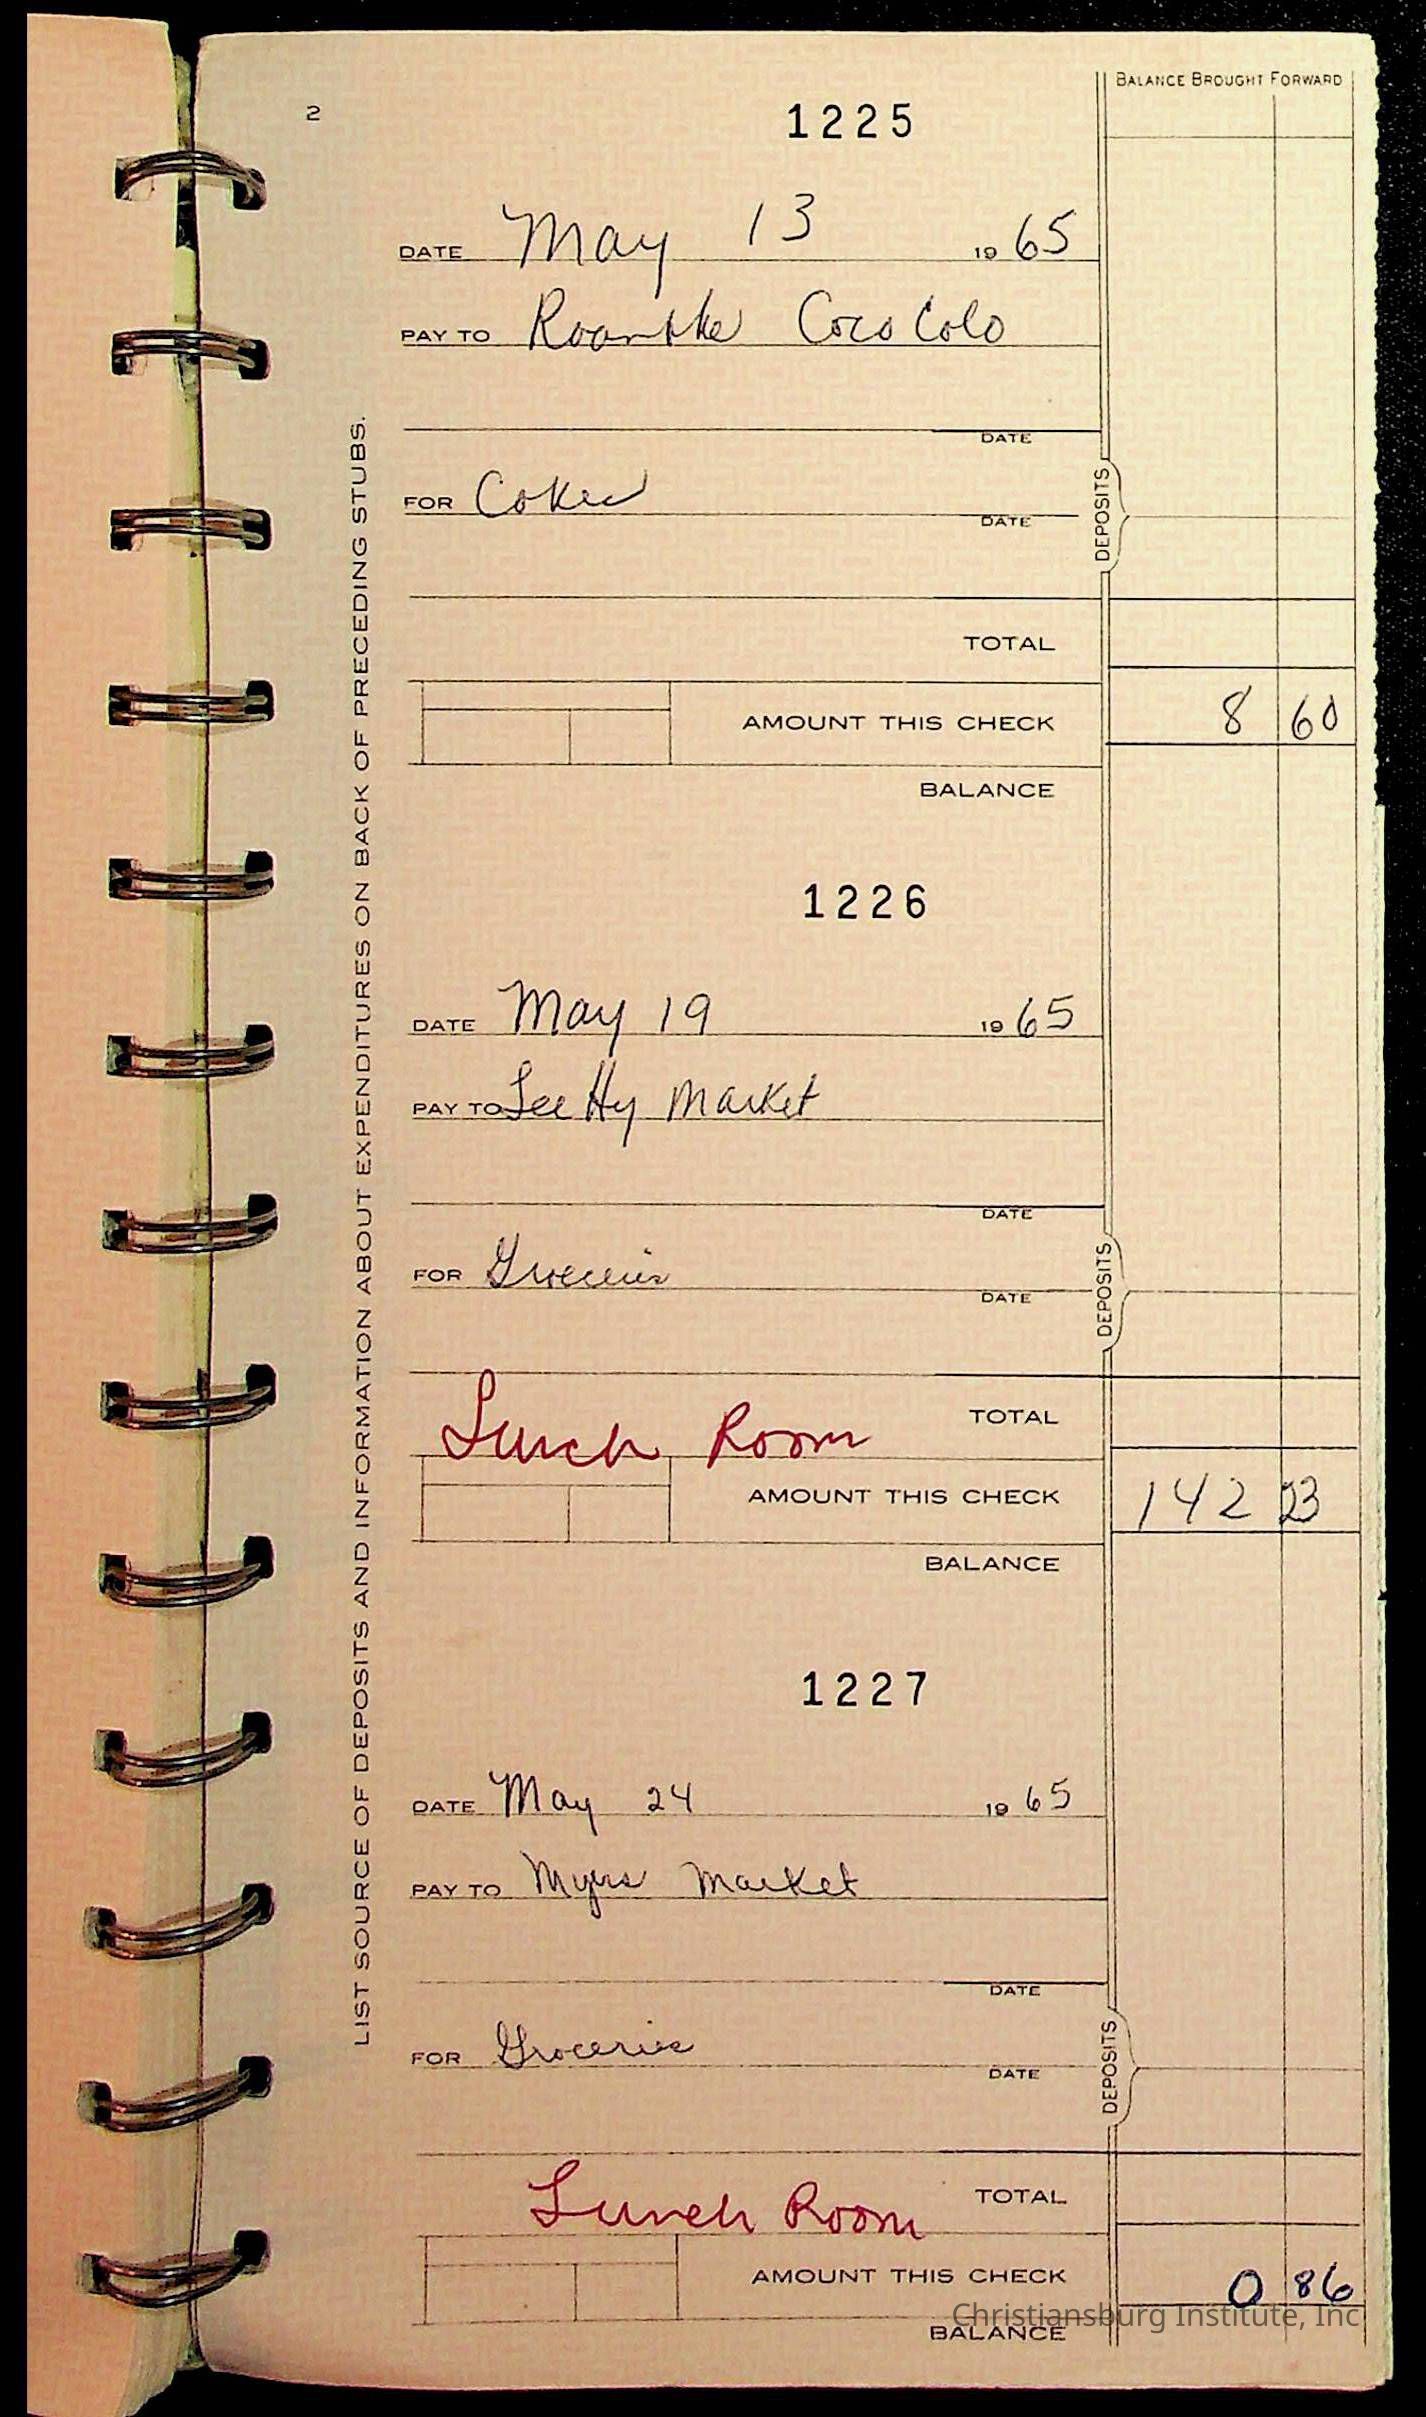 BALANCE BROUGHT FORWARD
2
1225
DATE May 13 19 65
PAY TO Roanoke Coca Cola
DATE
FOR Cokes
DATE
DEPOSITS
TOTAL
AMOUNT THIS CHECK 8 60
BALANCE
LIST SOURCE OF DEPOSITS AND INFORMATION ABOUT EXPENDITURES ON BACK OF PRECEDING STUBS.
1226
DATE May 19 19 65
PAY TO Lee Hy Market
DATE
FOR Groceries
DATE
DEPOSITS
Lunch Room TOTAL
AMOUNT THIS CHECK 142 23
BALANCE
1227
DATE May 24 19 65
PAY TO Myers Market
DATE
FOR Groceries
DATE
DEPOSITS
Lunch Room TOTAL
AMOUNT THIS CHECK 0 86
Christiansburg Institute, Inc
BALANCE